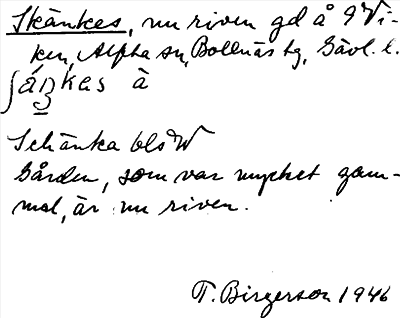 Skänkes, nu riven gd å 9 Vi-
ken, Alpha sn, Bollnäs tg, Gävl. l.
ʃáŋkas à
Schänka bls W
Gården, som var mycket gam-
mal, är nu riven.
T. Birgerson 1946